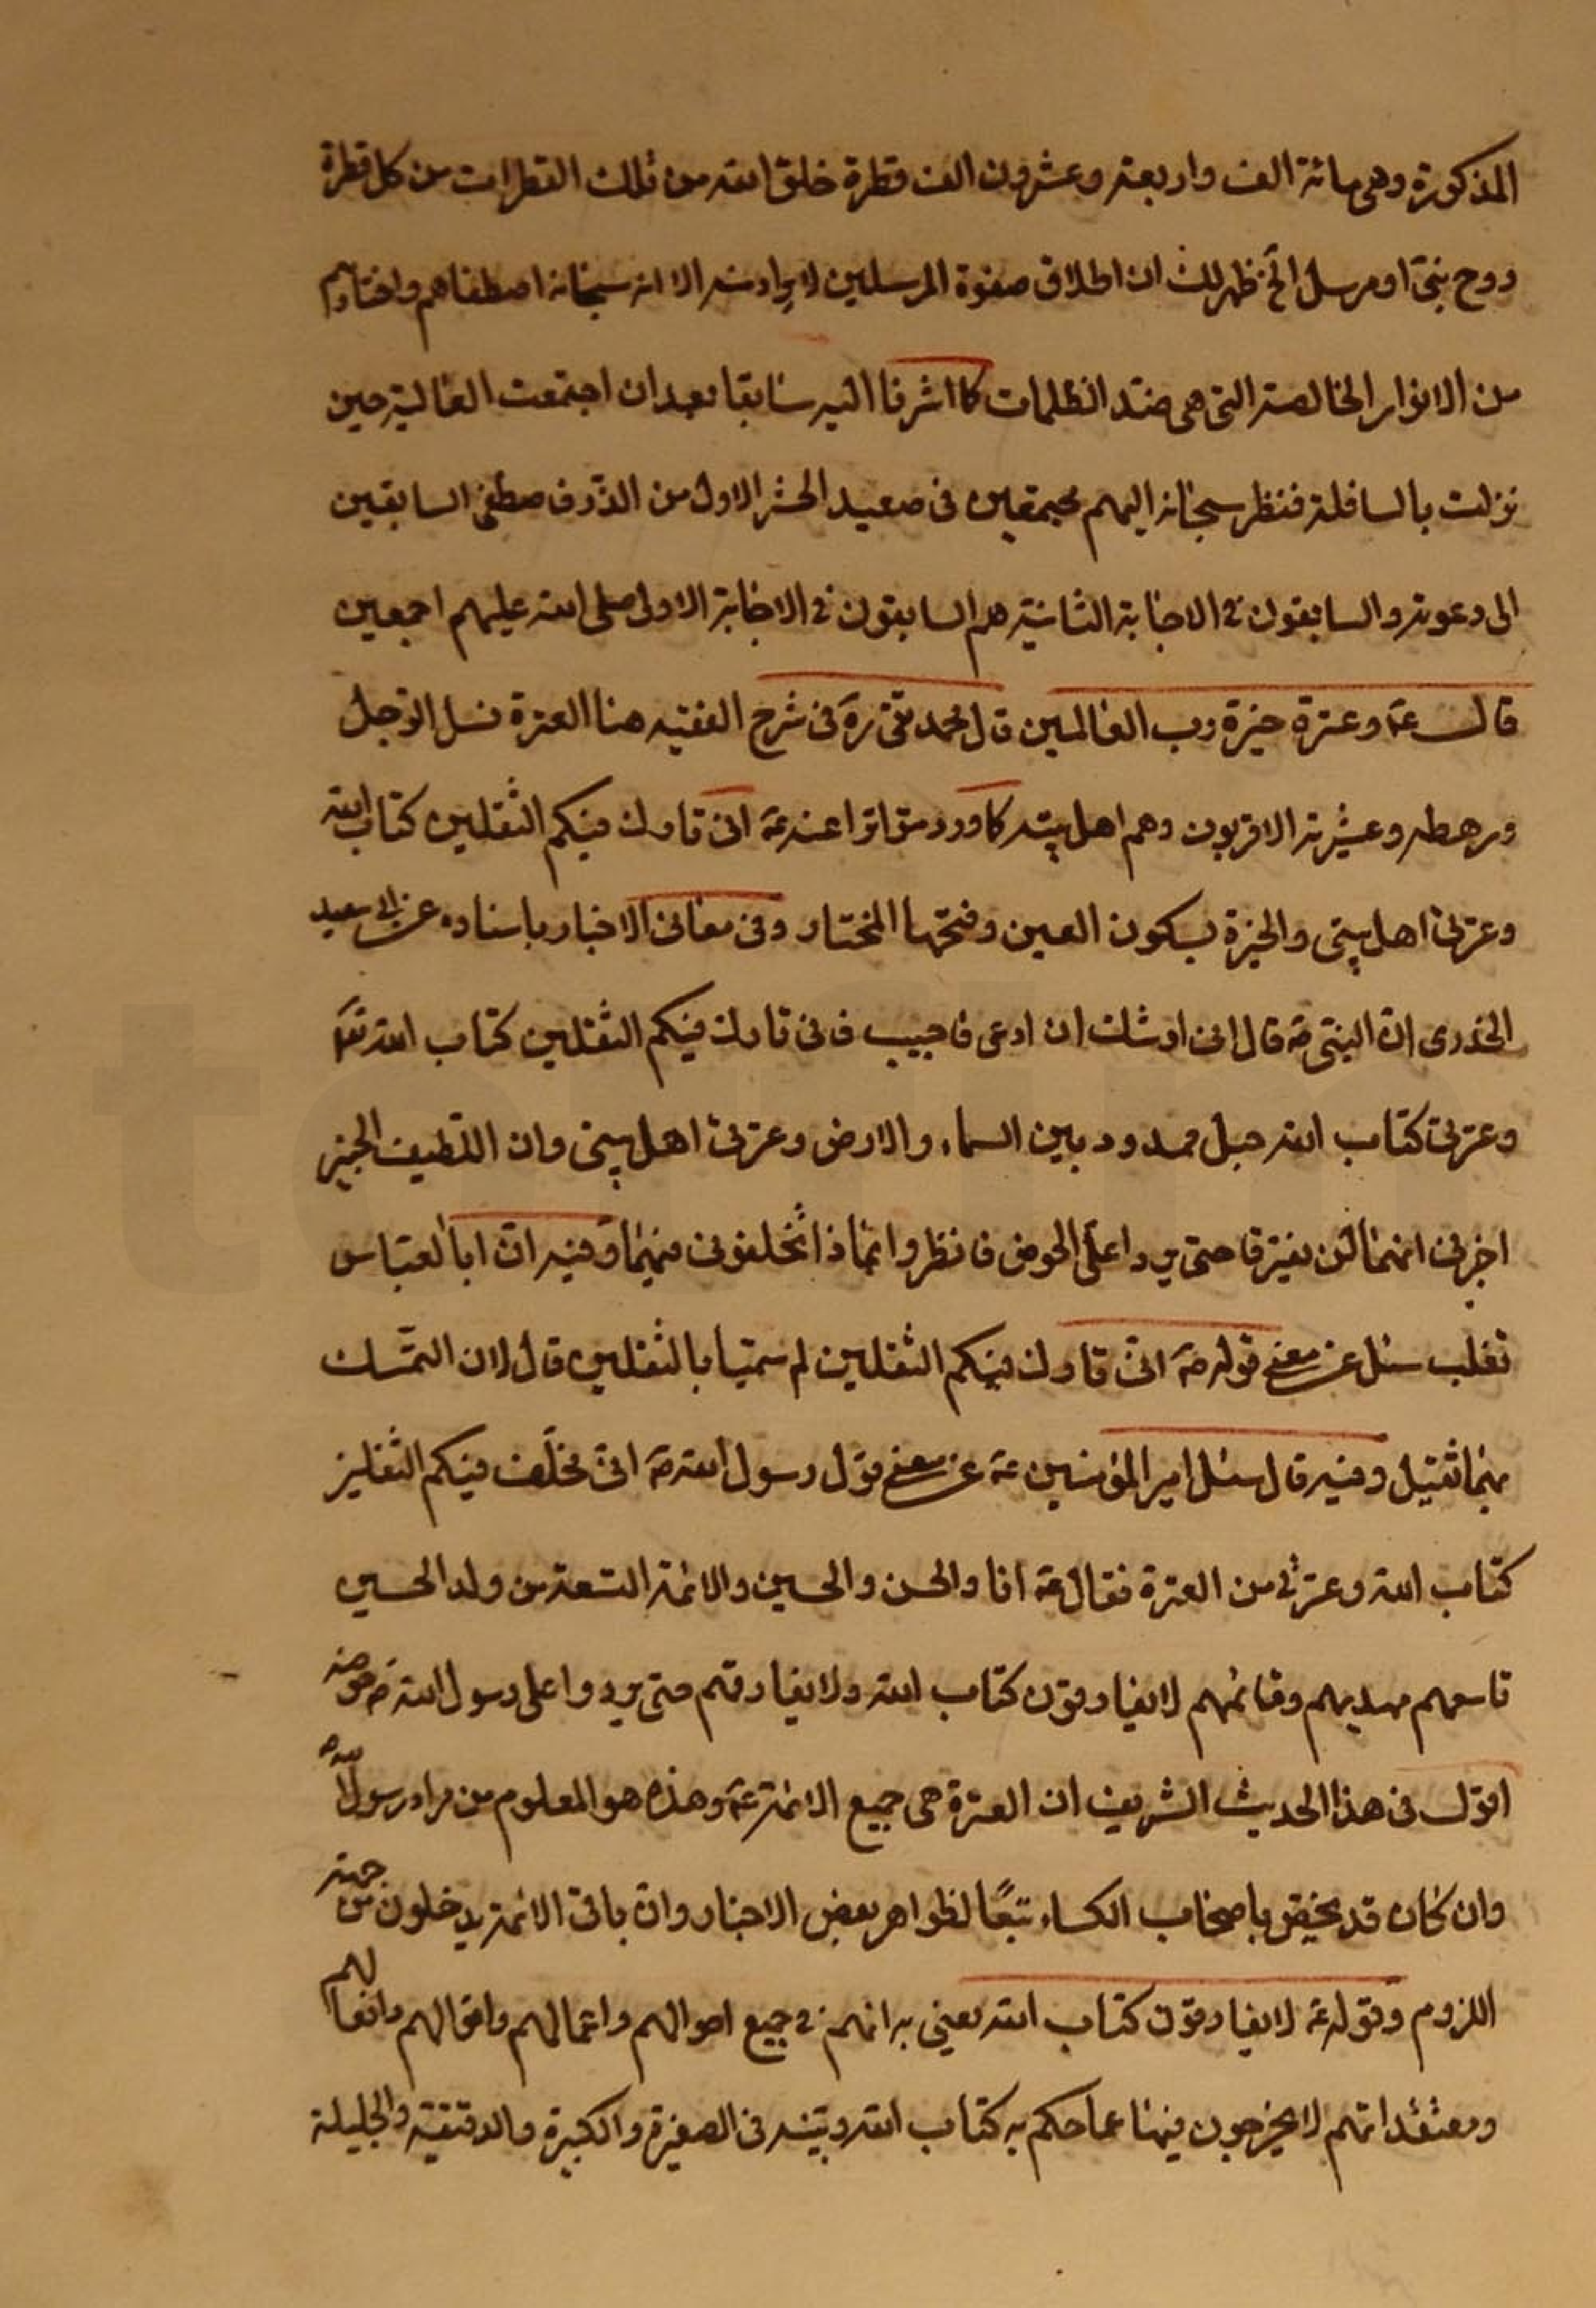 المذكورة وهى مائة الف واربعة وعشرون الف قطرة خلق الله من تلك القطرات من كل قطرة
روح نبىّ او مرسل الخ ظهر لك ان اطلاق صفوة المرسلين لا يراد منه الا انه سبحانه اصطفاهم واختارهم
من الانوار الخالصة التى هى ضد الظلمات كما اشرنا اليه سابقا بعد ان اجتمعت العالية حين
نزلت بالسافلة فنظر سبحانه اليهم مجتمعين فى صعيد الحشر الاول من الذّر فاصطفى السابقين
الى دعوته والسابقون فى الاجابة الثانية هم السابقون فى الاجابة الاولى صلى الله عليهم اجمعين
قال عَ وعترة خيرة رب العالمين قال محمد تقى ره فى شرح الفقيه هنا العترة نسل الرّجل
ورهطه وعشيرته الاقربون وهم اهل بيته كما ورد متواترا عنه عَ انى تارك فيكم الثقلين كتاب الله
وعترتى اهل بيتى والخيرة بسكون العين وفتحها المختار وفى معانى الاخبار باسناده عن ابى سعيد
الخدرى انّ النبىّ صَ قال انى اوشك ان ادعى فاجيب فانى تارك فيكم الثقلين كتاب الله تعَا
وعترتى كتاب الله حبل ممدود بين السماء والارض وعترتى اهل بيتى وان اللّطيف الخبير
اخبرنى انهما لن يفترقا حتى يردا علىّ الحوض فانظروا بماذا تخلفونى فيهما وفيه انّ ابا العبّاس
تغلب سئل عن معنى قوله صَ انّى تارك فيكم الثقلين لم سمّيا بالثقلين قال لان التمّسك
بهما ثقيل وفيه قال سئل امير المؤمنين عَ عن معنى قول رسول الله صَ انّى مخلّف فيكم الثقلين
كتاب الله وعترتى من العترة فقال عَ انا والحسن والحسين والائمة التسعة من ولد الحسين
تاسعهم مهديهم وقائمهم لا يفارقون كتاب الله ولا يفارقهم حتى يردوا على رسول الله صَ حوضه
اقول فى هذا الحديث الشريف ان العترة هى جميع الائمة عَ وهذه هو المعلوم من مراد رسول الله صَ
وان كان قد يختص باصحاب الكساء تبعًا لظواهر بعض الاخبار وانّ باقى الائمة يدخلون من جهة
اللزوم وقوله عَ لا يفارقون كتاب الله يعنى به انهم فى جميع احوالهم واعمالهم واقوالهم وافعالهم
ومعتقداتهم لا يخرجون فيها عما حكم به كتاب الله وبيّنه فى الصغيرة والكبيرة والدقيقة والجليلة